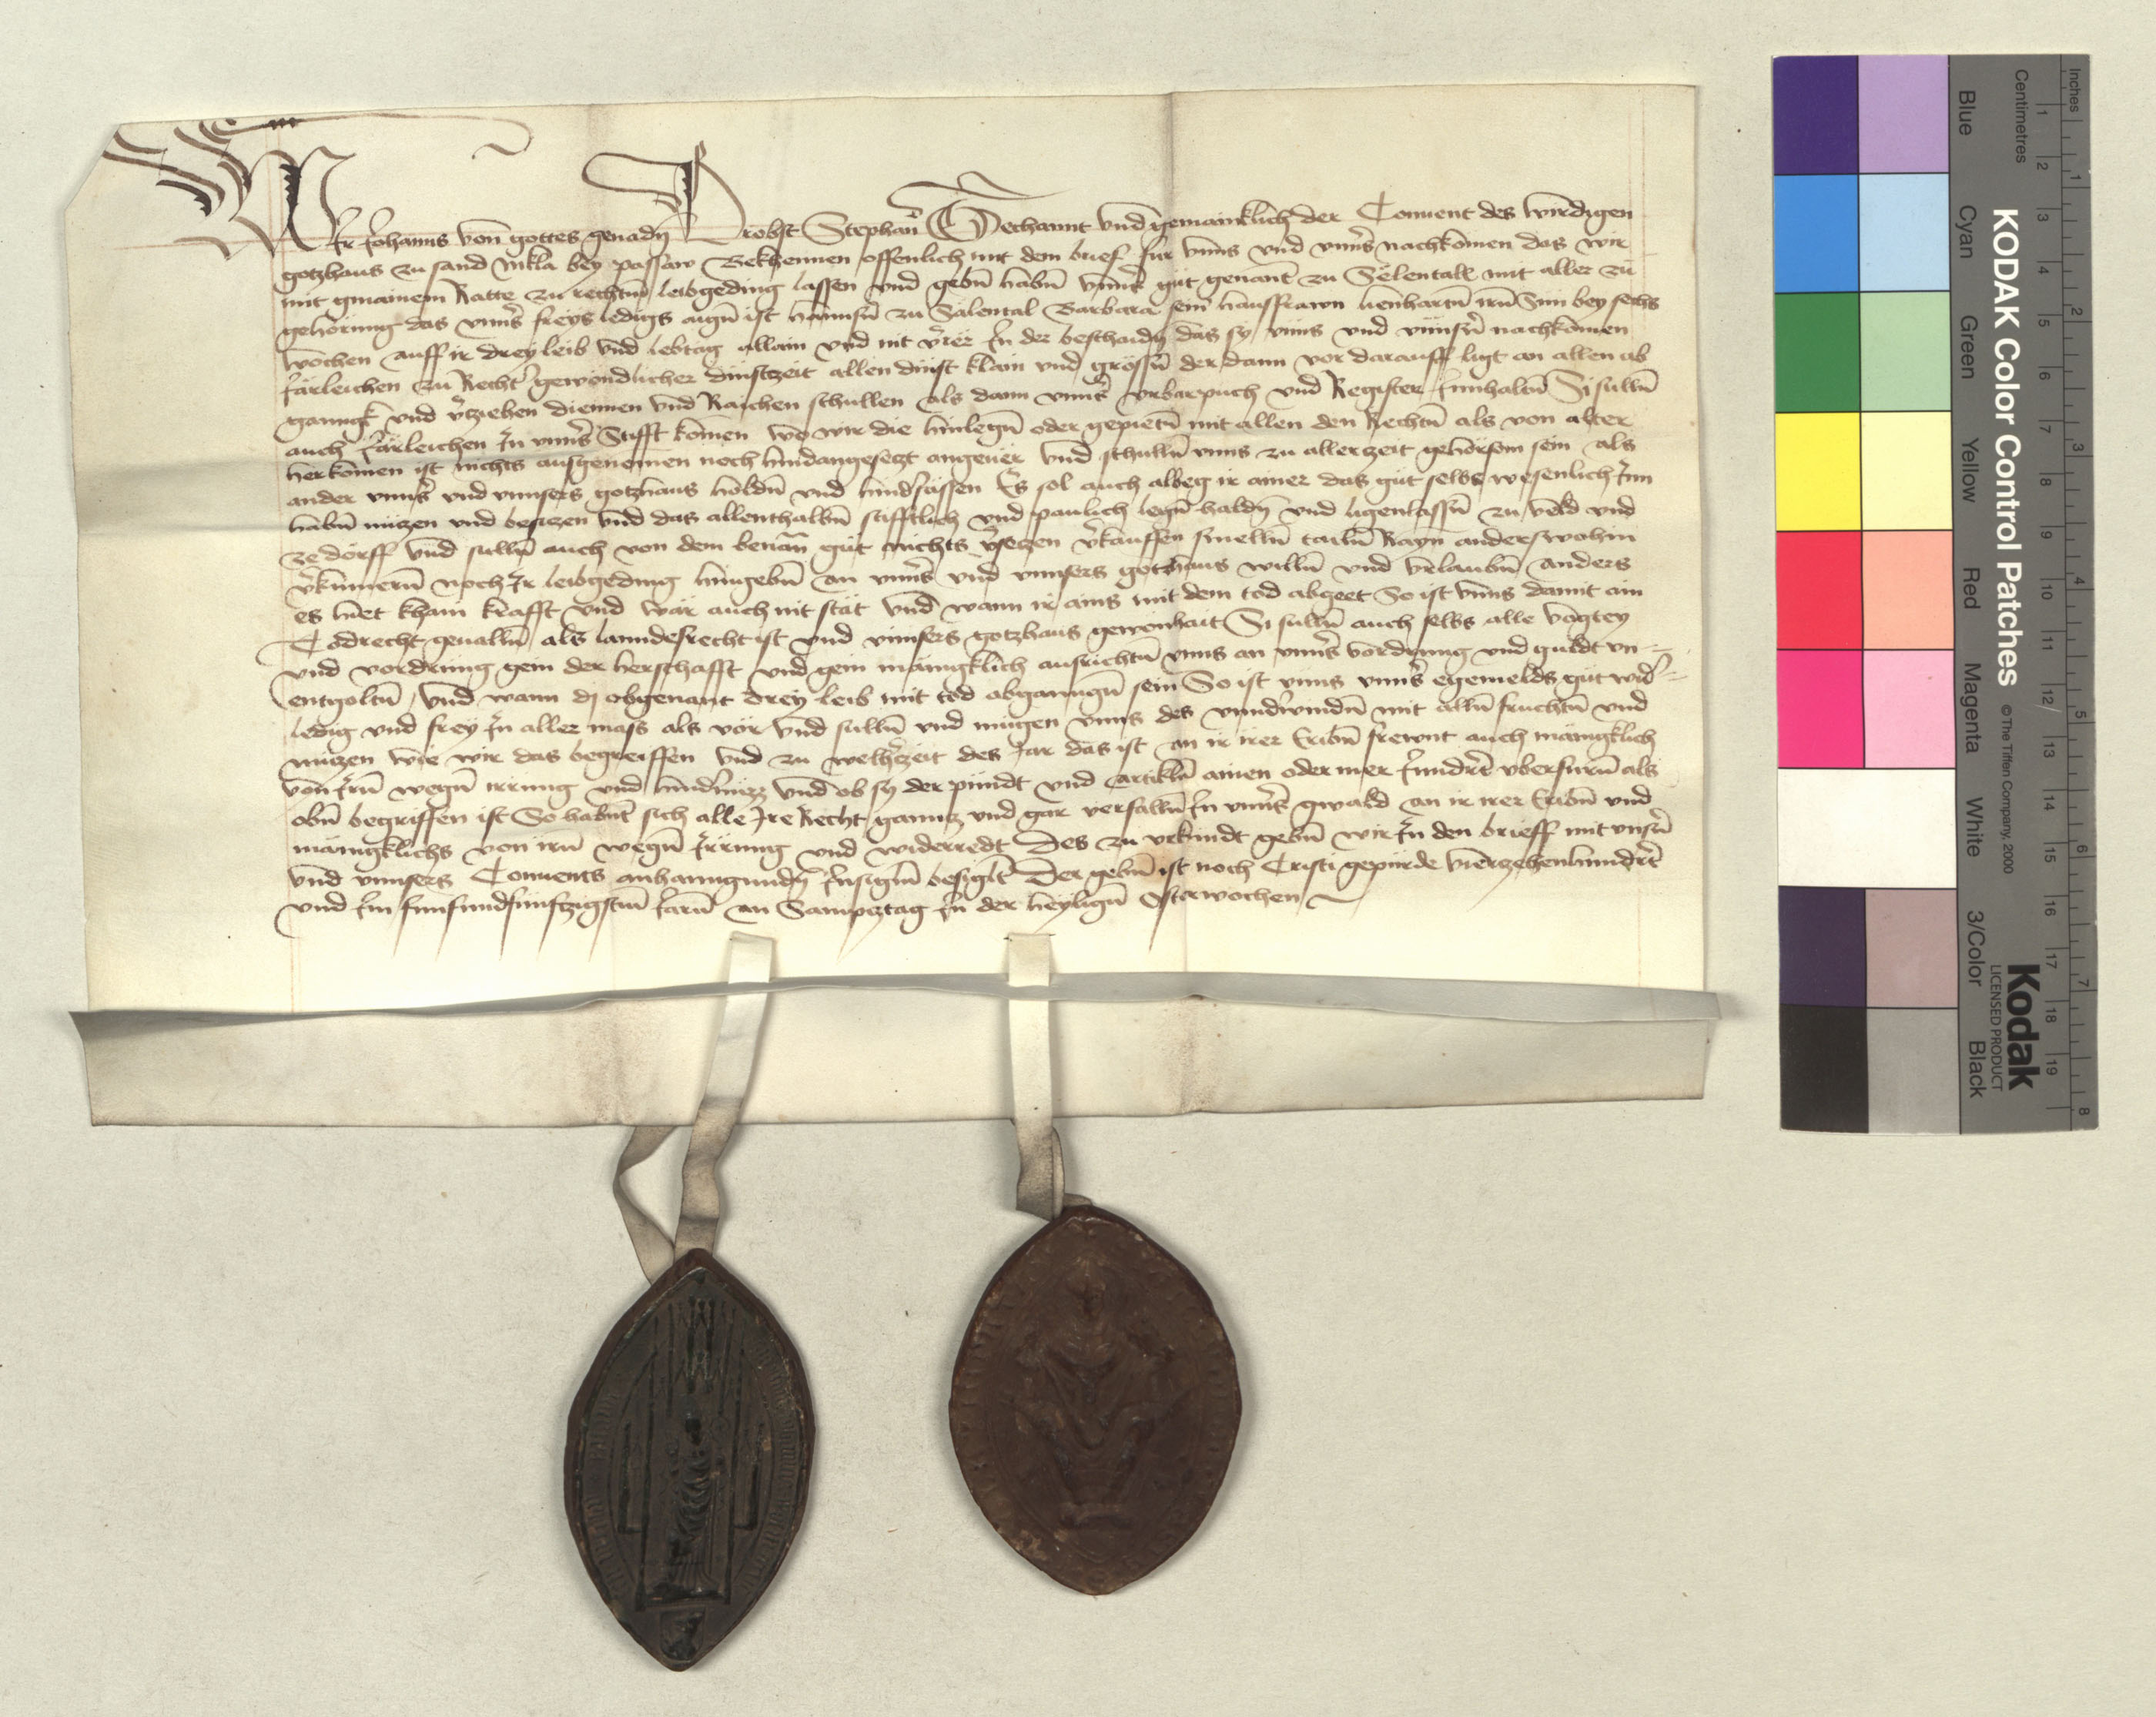 Wir Johanns von gottes genadn Probst Stephan Techannt vnd gemainklich der Conuent des wirdigen
gotzhaus zu sand Nikla bey passaw Bekhennen offenlich mit dem brief fur vnns vnd vnnser nachkomen das wir
mit gmainem Ratte zu rechtm leibgeding lassen vnd gebn habn vnnser gut genant zu Sëlentall mit aller zu
gehörung das vnnser freys ledigs aign ist hannsn zu Sälental Barbara sein hausfrawn lienhartn irn Sun bey sechs
wochen auff ir drey leib vnd lebtag allain vnd nit verer In der beschaidn das sy vnns vnd vnnsern nachkomen
Järleichen zu Recht gewondlicher dinstzeit allen dinst klain vnd grössn der dann vor darauff ligt an allen ab
ganngk vnd verziehen diennen vnd Raichen schullen als dann vnnser vrbarpuch vnd Register Innhaltn Si sulln
auch Järleichen In vnnser Stifft komen wo wir die hinlegn oder gepietn mit allen den Rechtn als von alter
herkomen ist nichts ausgenomen noch hindangesetzt angeuer vnd schulln vnns zu allerzeit gehorsam sein als
ander vnnser vnd vnnsers gotzhaus holdn vnd hindsässen Es sol auch albeg ir ainer das gut selbs wesenlich Inn
habn nutzen vnd besitzen vnd das allenthalbn stifftlich vnd paulich legn haldn vnd ligenlassn zu veld vnd
ze dorff vnd sulln auch von dem benan gut nichts versetzen verkauffen smelln tailn Rayn anderswohin
verkumern noch Ir leibgeding hingebn an vnnser vnd vnnsers gotzhaus willn vnd vrlaubn anders
es hiet khain krafft vnd wär auch nit stät vnd wann ir ains mit dem tod abgeet So ist vnns damit ain
Todrecht geualln als lanndesrecht ist vnd vnnsers gotzhaus gewonhait Si sulln auch selbs alle vogtey
vnd vordrung gein der herschafft vnd gein männgklich ausrichtn vnns an vnnser vordrung vnd guldt vn=
entgoltn vnd wann dj obgenant drey leib mit tod abganngn sein So ist vnns vnnser egemelds gut wid=
ledig vnd frey In aller mass als vor vnd sulln vnd mugen vnns des vnnderwindn mit alln fruchtn vnd
nutzen wie wir das begreiffen vnd zu welherzeit des Jar das ist an ir irer Eribn frewnt auch männgklich
von Irn wegn irrung vnd hindernuzz vnd ob sy der pundt vnd artikln ainen oder mer Inndert vberfurn als
obn begriffen ist So habnt sich alle Ire Recht ganntz vnd gar verfalln In vnnser gwald an ir irer Eribn vnd
männgklichs von irn wegn Irrung vnd widerredt Des zu vrkundt gebn wir In den brieff mit vnsern
vnd vnnsers Conuents anhanngundn Insigln besiglt Der gebn ist noch Cristi gepurde vierzehenhundert
vnd Im funfundfunftzigstm Jarn an Sampcztag In der heylign Osterwochen
KODAK Color Control Patches © The Tiffen Company, 2000
Kodak
LICENSED PRODUCT
Blue Cyan Green Yellow Red Magenta White 3/Color Black
Inches 1 2 3 4 5 6 7 8
Centimetres 1 2 3 4 5 6 7 8 9 10 11 12 13 14 15 16 17 18 19